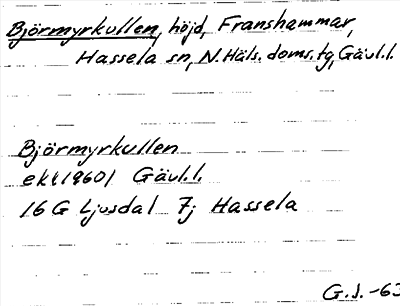 Björmyrkullen, höjd, Franshammar,
Hassela sn, N. Häls. doms. tg, Gävl.l.
Björmyrkullen
ekt19601 Gävl.l.
16 G Ljusdal 7j Hassela
G.J. -63